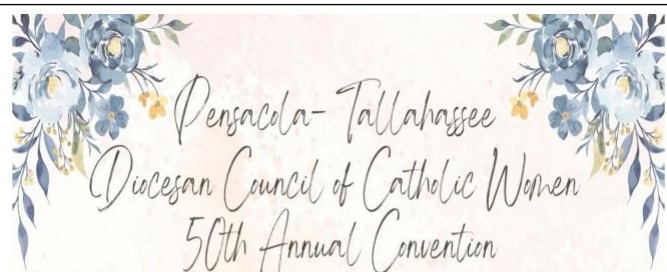 Pensacola- Tallahassee
Diocesan Council of Catholic Women
50th Annual Convention